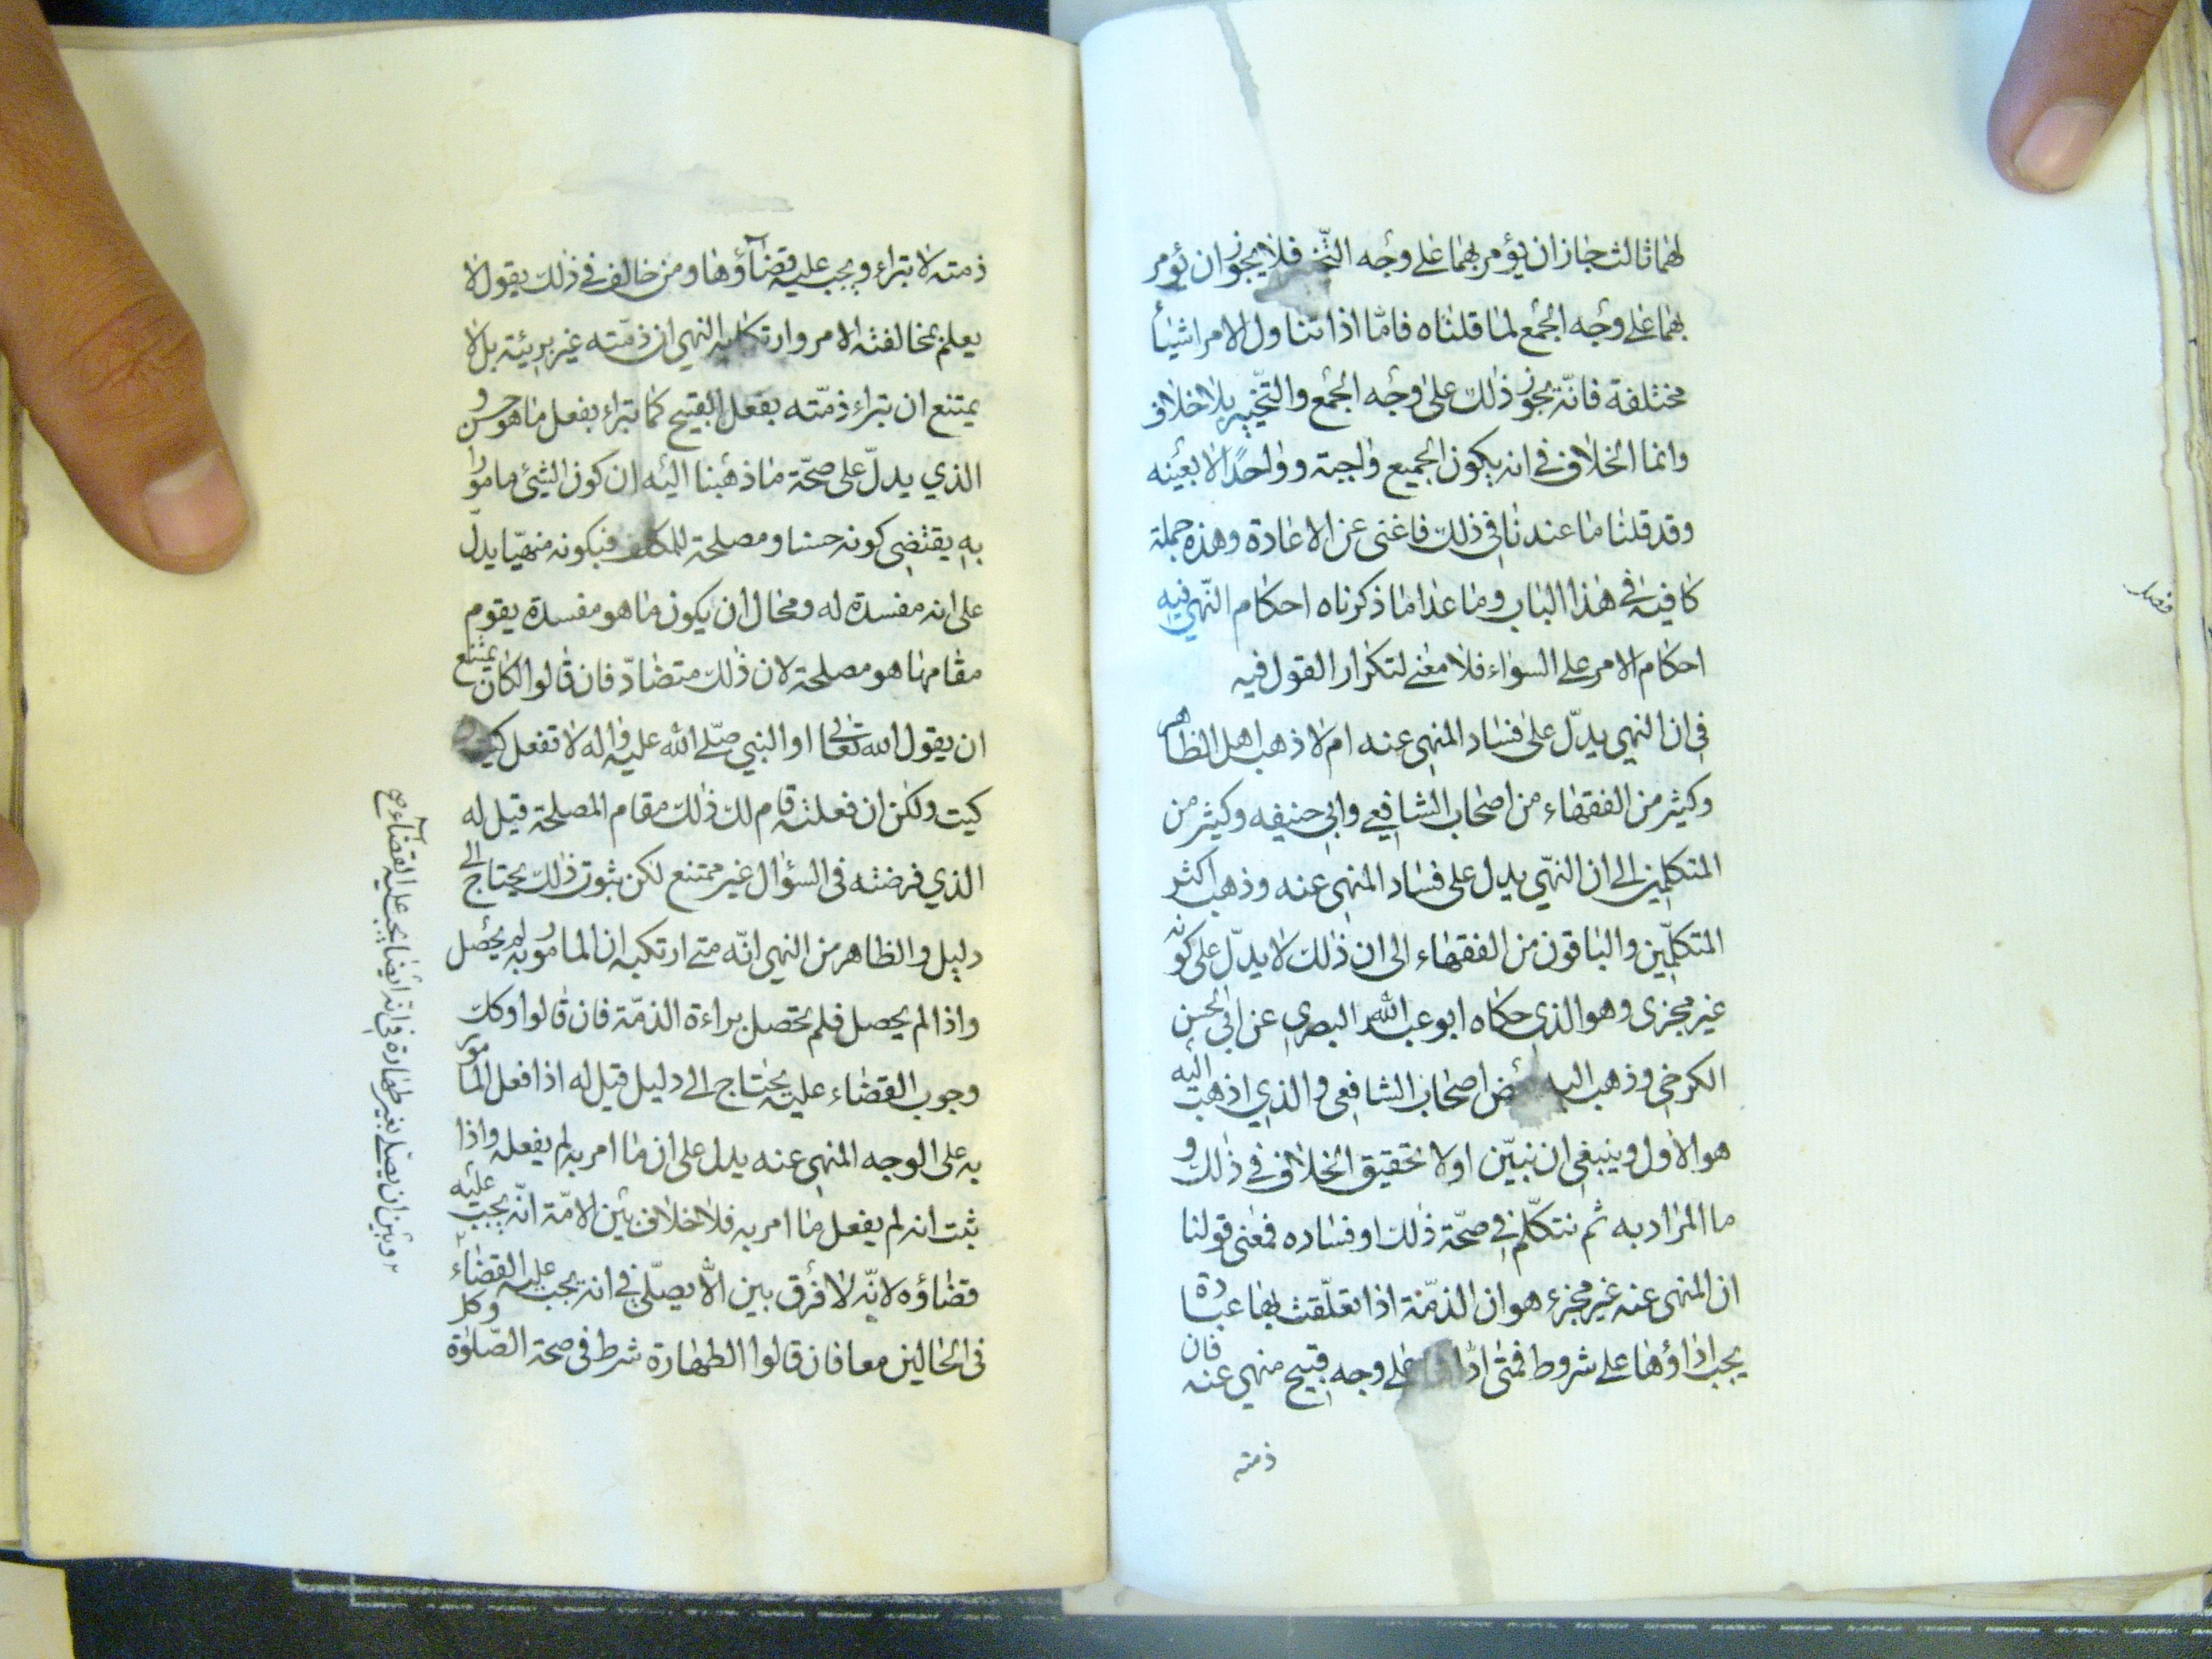 لهما ثالث جاز ان يؤمر بهما على وجه فلا يجوز ان يؤمر
بهما على وجه الجمع لما قلناه فامّا اذا تناول الامر اشيأ
مختلفة فانّه يجوز ذلك على وجه الجمع والتّخيير بلا خلاف
وانما الخلاف في انه يكون الجميع واجبة وواحدًا لا بعينه
وقد قلنا ما عندنا في ذلك فاغنى عن الاعادة وهذه جملة
كافية في هذا الباب وما عدا ما ذكرناه احكام النّهي فيه
احكام الامر على السواء فلا معنى لتكرار القول فيه
فصل
في ان النهي يدلّ على فساد المنهى عنه ام لا ذهب اهل الظاهر
وكثير من الفقهاء من اصحاب الشافعي وابي حنيفه وكثير من
المتكلمين الى ان النهّي يدل على فساد المنهى عنه وذهب اكثر
المتكلّمين والباقون من الفقهاء الى ان ذلك لا يدلّ على كونه
غير مجزى وهو الذي حكاه ابو عبد الله البصري عن ابي الحسن
الكرخي وذهب اصحاب الشافعي والذي اذهب اليه
هو الاول وينبغي ان نبيّن اولا تحقيق الخلاف في ذلك و
ما المراد به ثم نتكلّم في صحّة ذلك او فساده فمعنى قولنا
ان المنهى عنه غير مجزء هو ان الذمّة اذا تعلّقت بها عبادة
يجب اداؤها على شروط فمتى على وجه قبيح منهى عنه فان
ذمته
ذمته لا تبراء ويجب عليه قضاؤها ومن خالف في ذلك يقول لا
يعلم بمخالفته الامر وارتكابه النهي ان ذمّته غير بريئة بل لا
يمتنع ان تبراء ذمّته بفعل القبيح كما تبراء بفعل ما هو حسن و
الذي يدلّ على صحّة ما ذهبنا اليه ان كون الشيئ مامورا
به يقتضي كونه حسنا ومصلحة للمكلف فبكونه منهيّا يدلّ
على انه مفسدة له ومحال ان يكون ما هو مفسدة يقوم
مقام ما هو مصلحة لان ذلك متضادّ فان قالوا اكان يمتنع
ان يقول الله تعالى او النبي صلّى الله عليه واله لا تفعل كيت
كيت ولكن ان فعلته قام لك ذلك مقام المصلحة قيل له
الذي فرضته في السؤال غير ممتنع لكن ثبوت ذلك يحتاج الى
دليل والظاهر من النهى انّه متى ارتكبه ان المامور به لم يحصل
واذا لم يحصل فلم تحصل براءة الذمّة فان قالوا وكك
وجوب القضاء عليه يحتاج الى دليل قيل له اذا فعل المامور
به على الوجه المنهى عنه يدل على ان ما امر به لم يفعله واذا
ثبت انه لم يفعل ما امر به فلا خلاف بين الامّة انّه يجب عليه
قضاؤه لانّه لا فرق بين الّا يصلّى في انه يجب عليه القضاء
في الحالين معا فان قالوا الطهارة شرط في صحة الصّلوة وكل
وبين ان يصلّى بغير طهارة في انه ايضا يجب عليه القضاء صح